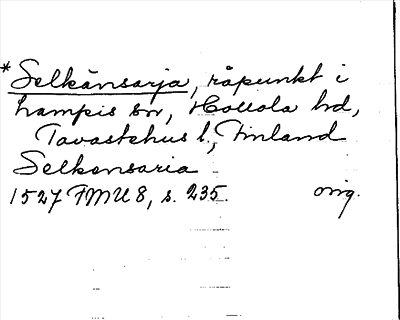 *Selkänsarja, råpunkt i
Lampis sn, Hollola hd,
Tavastehus l., Finland
Selkensaria
1527 FMU 8, s. 235. orig.